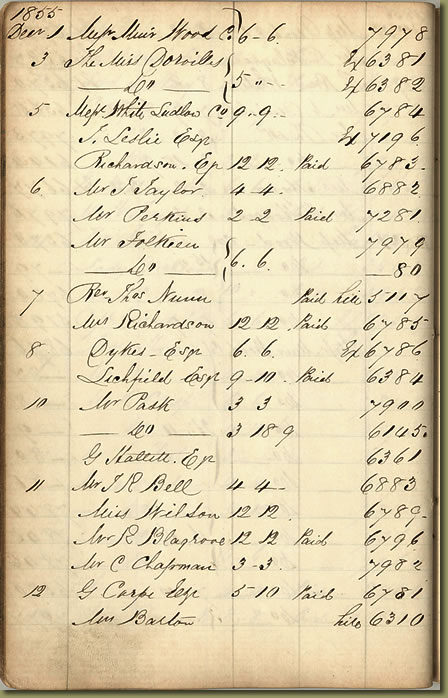 1855
Decr 1 Messrs Muir Wood Co 6 - 6. 7978
3 The Miss Dorvilles Ex 6381
— Do — 5 " - Ex 6382
5 Messrs White Ludlow Co 9 - 9 - 6784
J. Leslie Esq Ex 7196
Richardson. Esq 12 12. Paid 6783.
6 Mr J Taylor 4 - 4 - 6882
Mr Perkins 2 - 2 Paid 7281
Mr Tolkien 7979
— Do — 6. 6. — 80
7 Rev Thos Nunn Paid hire 5117
Mrs Richardson 12 12 Paid 6785
8 Dykes - Esq 6. 6. Ex 6786
Lichfield Esq 9 - 10. Paid 6384
10 Mr Pask 3 3 7900
— Do — 3 18 9 6145.
G Hallett. Esq 6361
11 Mr J R Bell 4 4 - 6883
Miss Wilson 12 12. 6789 -
Mr R Blagrove 12 12 Paid 6796
Mr C Chapman 3 - 3 - 7982
12 G Corpe Esq 5 - 10 Paid 6781
Mrs Barton hire 6310